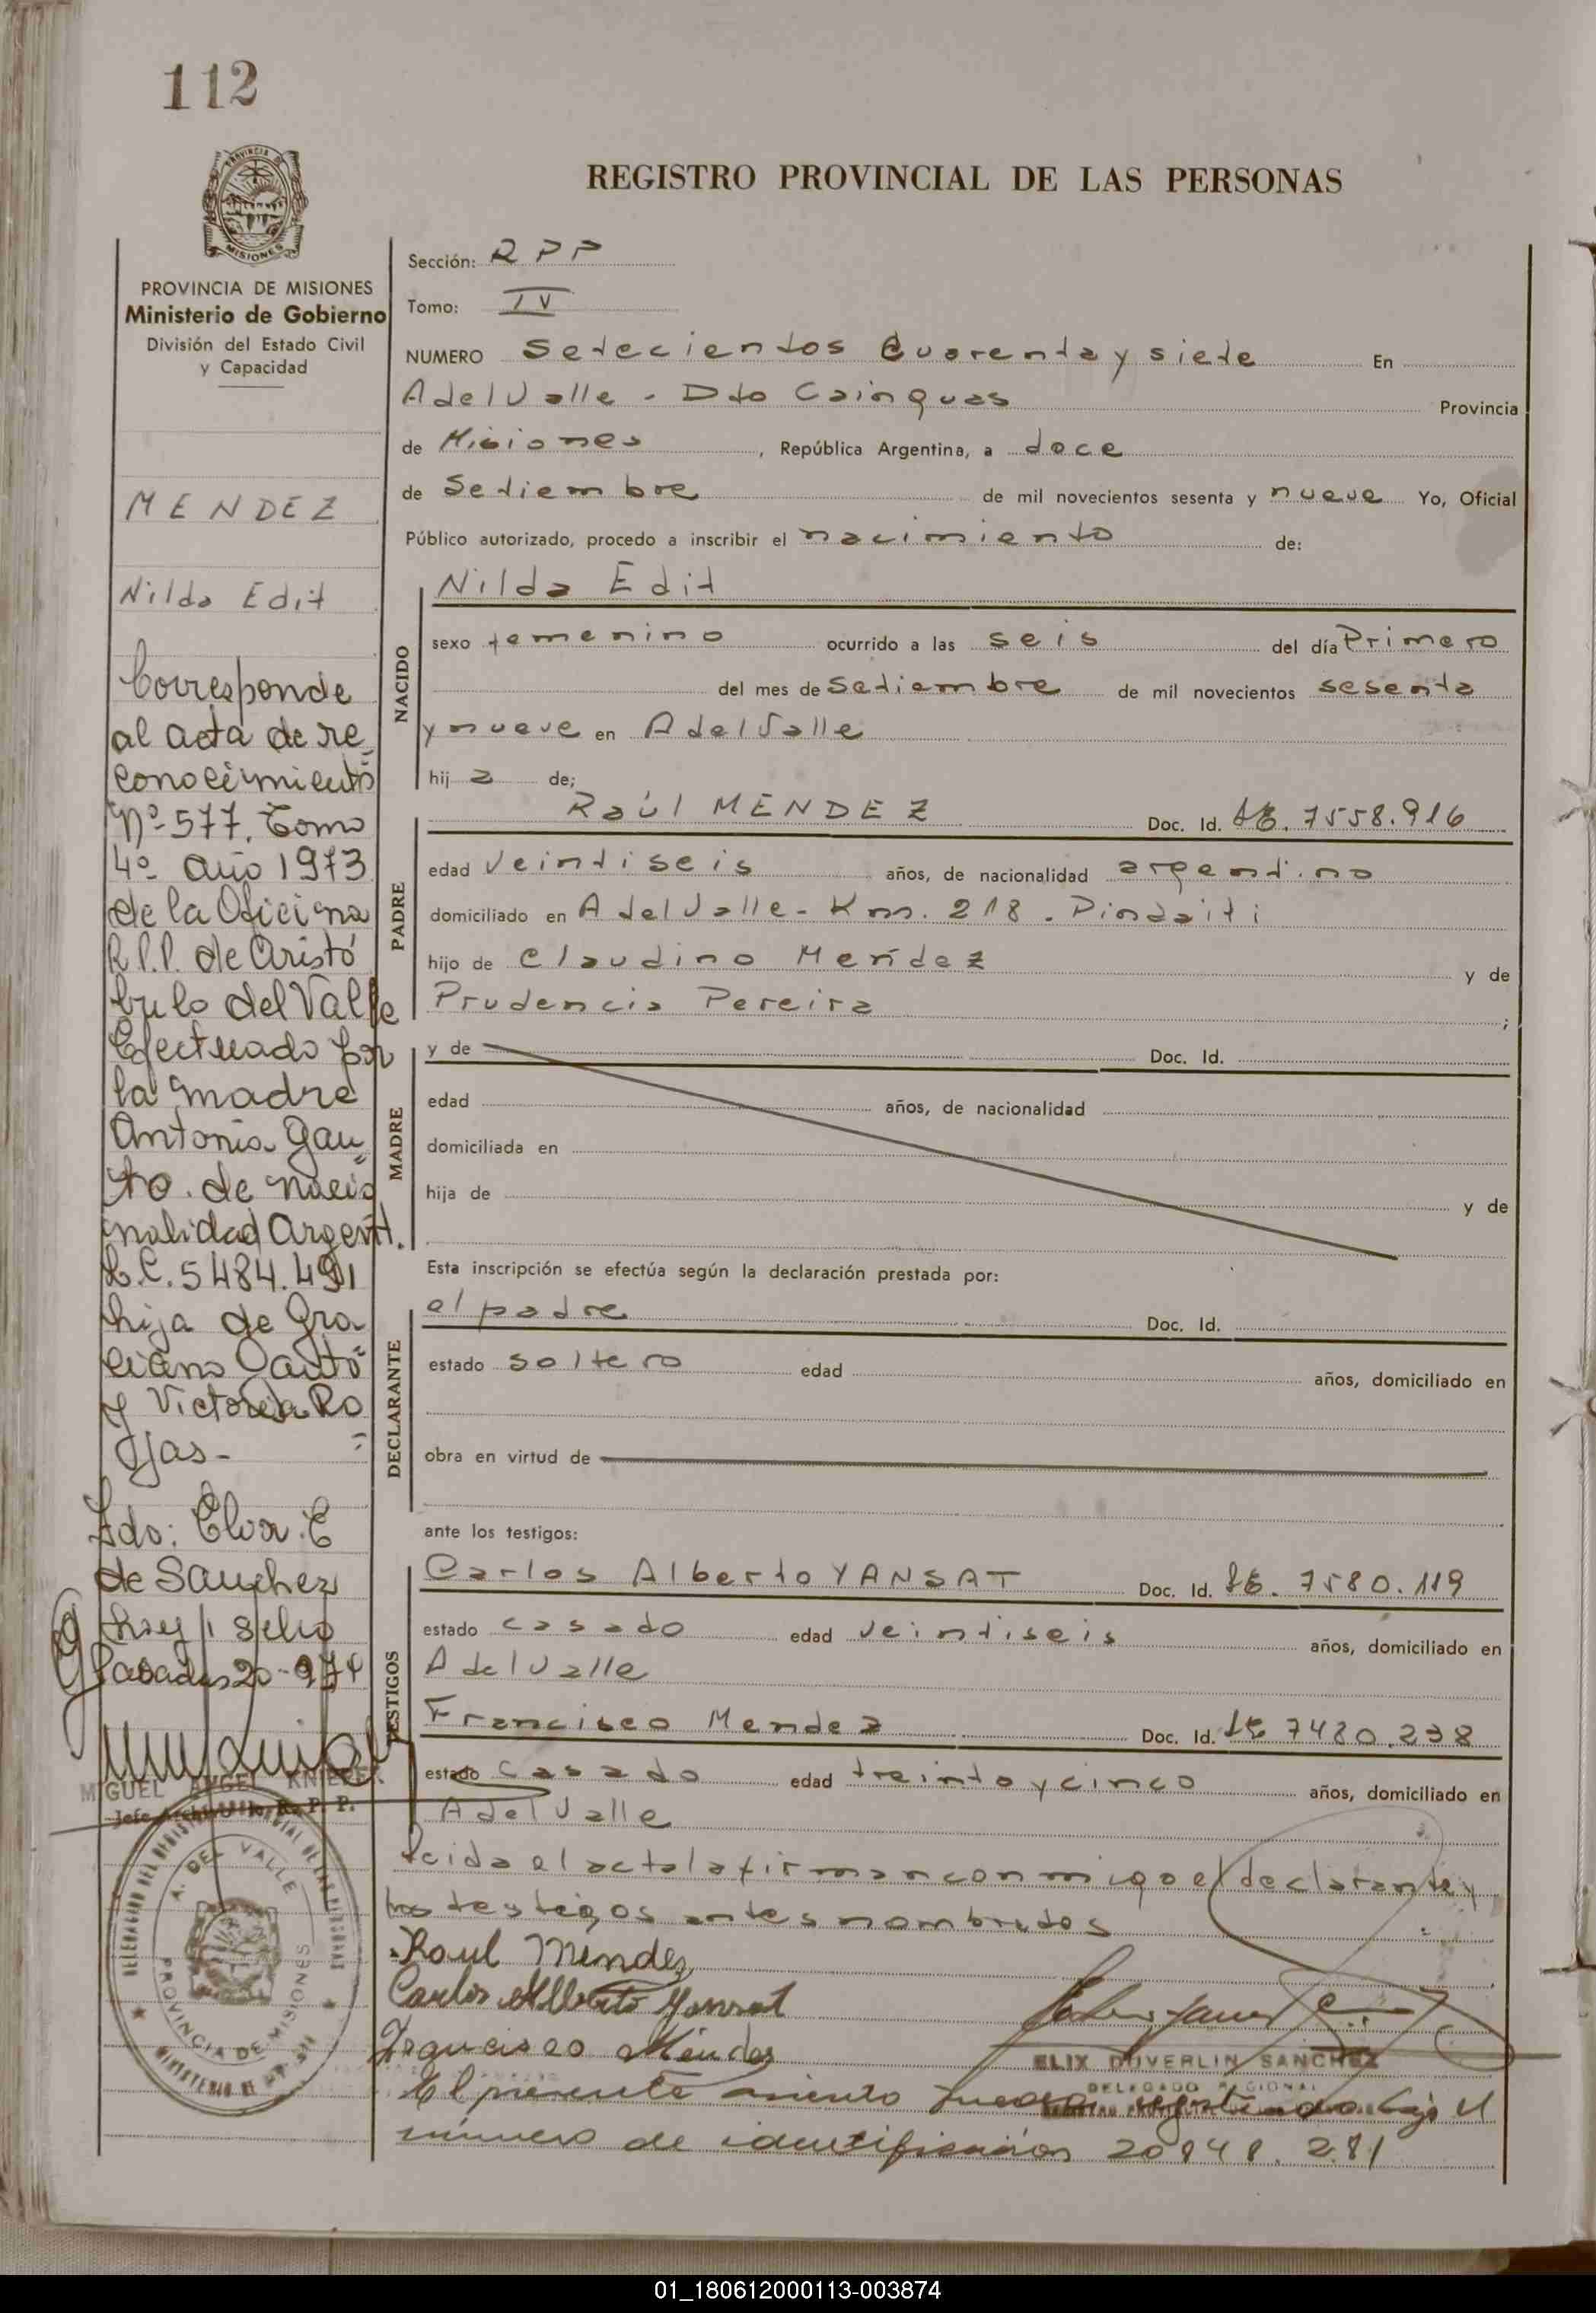 112
REGISTRO PROVINCIAL DE LAS PERSONAS
PROVINCIA DE
MISIONES
PROVINCIA DE MISIONES
Ministerio de Gobierno
División del Estado Civil
y Capacidad
MENDEZ
Nilda Edit
Corresponde
al acta de re
conocimiento
Nº 577. Tomo
4º año 1973
de la Oficina
R.P.P. de Aristó
bulo del Valle
Efectuado por
la madre
Antonia Gau
to. de nacio
nalidad Argent.
L.C. 5484.491
hija de Gra
ciano Gauto
y Victoria Ro
jas-
Fdo: Elva E
de Sanchez
hay 1 sello
Posadas 20-974
MIGUEL ANGEL KNIEPEK
R. P. P.
A. DEL VALLE
PROVINCIA DE MISIONES
Sección: R P P
Tomo: IV
NUMERO Setecientos Cuarenta y siete En
A del Valle - Dto Cainguas Provincia
de Misiones, República Argentina, a doce
de Setiembre de mil novecientos sesenta y nueve Yo, Oficial
Público autorizado, procedo a inscribir el nacimiento de:
NACIDO
Nilda Edit
sexo femenino ocurrido a las seis del día Primero
del mes de Setiembre de mil novecientos sesenta
y nueve en A del Valle
hij a de;
PADRE
Raúl MENDEZ Doc. Id. LE. 7558.916
edad veintiseis años, de nacionalidad argentino
domiciliado en A del Valle - Km. 218. Pindaiti
hijo de Claudino Mendez y de
Prudencia Pereira ;
MADRE
y de Doc. Id.
edad años, de nacionalidad
domiciliada en
hija de y de
Esta inscripción se efectúa según la declaración prestada por:
DECLARANTE
el padre Doc. Id.
estado soltero edad años, domiciliado en
obra en virtud de
ante los testigos:
TESTIGOS
Carlos Alberto YANSAT Doc. Id. LE. 7580.119
estado casado edad veintiseis años, domiciliado en
A del Valle
Francisco Mendez Doc. Id. LE 7480.238
estado casado edad treinta y cinco años, domiciliado en
A del Valle
Leida el acta la firman conmigo el declarante y
los testigos antes nombrados
Raul Mendez
Carlos Alberto Yansat
Francisco Mendez
ELIX DUVERLIN SANCHEZ
DELEGADO REGIONAL
El presente asiento queda registrado bajo el
número de identificación 20848.281
01_180612000113-003874